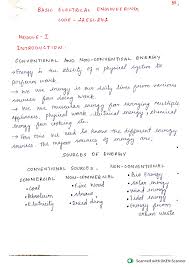 BASIC ELECTRICAL ENGINEERING
CODE - 22ESI
MODULE - I
INTRODUCTION -
CONVENTIONAL AND NON-CONVENTIONAL ENERGY
→ Energy is the ability of a physical system to
perform work
→ We use energy in our daily lives from various
sources
→ We use energy for multiple
appliances, physical work, chemical energy
food for eating
→ For this we need to know the different energy
sources. The major sources of energy are,
SOURCES OF ENERGY
CONVENTIONAL SOURCES NON-CONVENTIONAL
COMMERCIAL NON-COMMERCIAL
• Coal • Fire Wood • Bio Energy
• Petroleum • Straw • Solar energy
• Electricity • Dried dung • Wind energy
• energy
• Energy from
urban waste
Scanned with OKEN Scanner